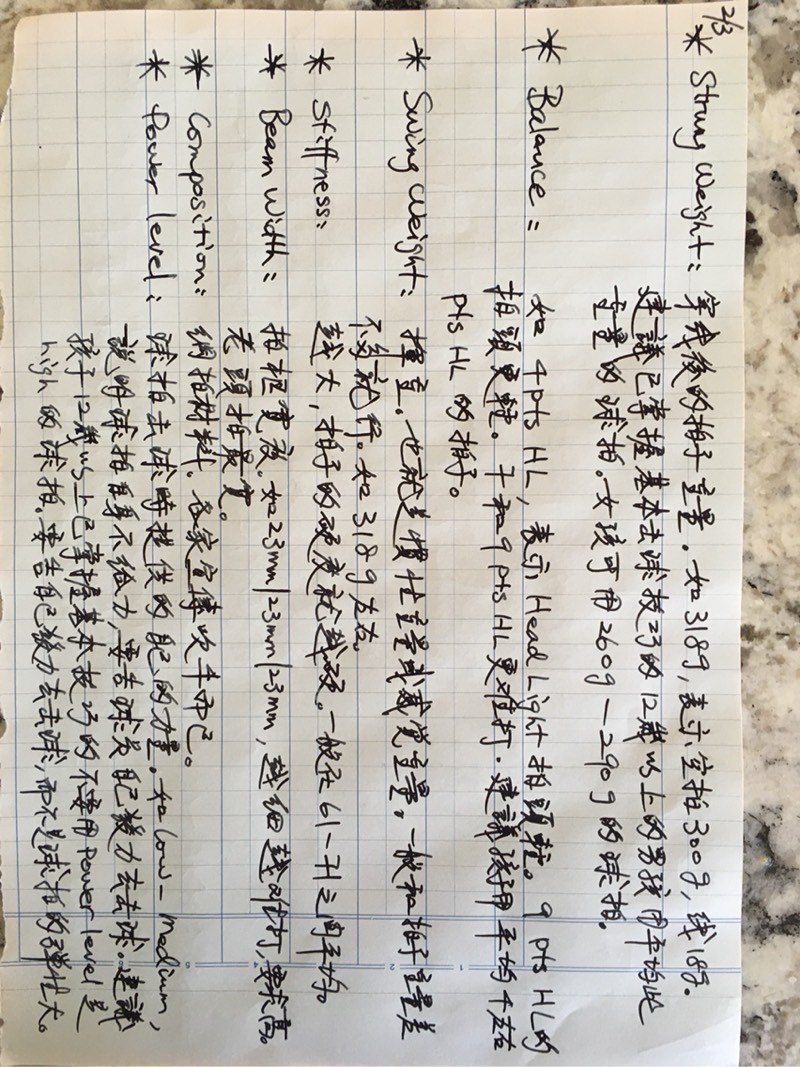 2/3
* Strung Weight: 穿线後的拍子重量。如318g,表示空拍300g,线18g。
建議已掌握基本击球技巧的12歲以上的男孩用平均此
重量的球拍。女孩可用260g—290g的球拍。
* Balance: 如4pts HL,表示Head Light拍頭輕。9pts HL的
拍頭更輕。于和9pts HL更难打。建議孩用平均4左右
pts HL的拍子。
* Swing Weight: 揮重。也就是慣性重量或感觉重量。一般和拍子重量差
不多就行。如318g左右。
* Stiffness: 越大,拍子的硬度就越硬。一般在61-71之間平均。
* Beam Width: 拍框寬度。如23mm/23mm/23mm,越細越难打,要求高。
老頭拍最宽。
* Composition: 網拍材料。各家宣傳吹牛而已。
* Power Level: 球拍击球時提供的自己的力量。如Low-Medium,
說明球拍自身不给力,要告球员自己發力去击球。建議
孩子12歲以上已掌握基本技巧的不要用Power Level是
high的球拍。要告自己發力去击球,而不是球拍的弹性大。